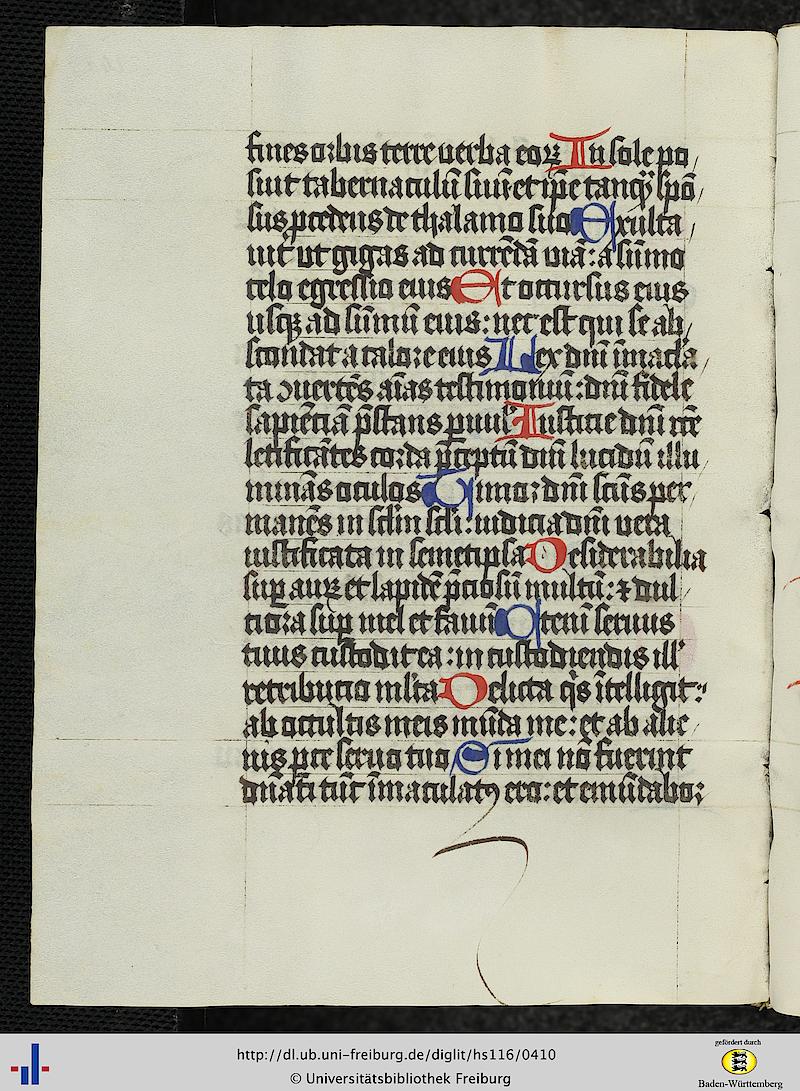 fines orbis terre verba eoꝝ In sole po
suit tabernaculū suū et ip̄e tanqͣȝ spō
sus ꝓcedens de thalamo suo Exulta
uit vt gigas ad currēdā uiā: a sūmo
celo egressio eius Et occursus eius
usqꝫ ad sūmū eius: nec est qui se ab
scondat a calore eius Lex dnī īmacla
ta ꝯuertēs aīas testimoniuū: dnī fidele
sapiēciā p̄stans ꝑuul' Iusticie dnī rc̄e
letificātes corda p̄ceptū dnī lucidū illu
minās oculos Timor dnī scūs per
manēs in sclm̄ scl̄i: iudicia dnī uera
iustificata in semetipsa Desiderabilia
suꝑ auꝝ et lapidē p̄ciosū multū: ⁊ dul
ciora suꝑ mel et fauū Eteni seruus
tuus custodit ea: in custodiendis ill'
retribucio ml̄ta Delicta q̇s ītelligit:
ab occultis meis mūda me: et ab alie
nis ꝑce seruo tuo Si mei nō fuerint
dn̄ati tūc īmaculatꝰ ero: et emūdabor
http://dl.ub.uni-freiburg.de/diglit/hs116/0410
© Universitätsbibliothek Freiburg
gefördert durch
Baden-Württemberg